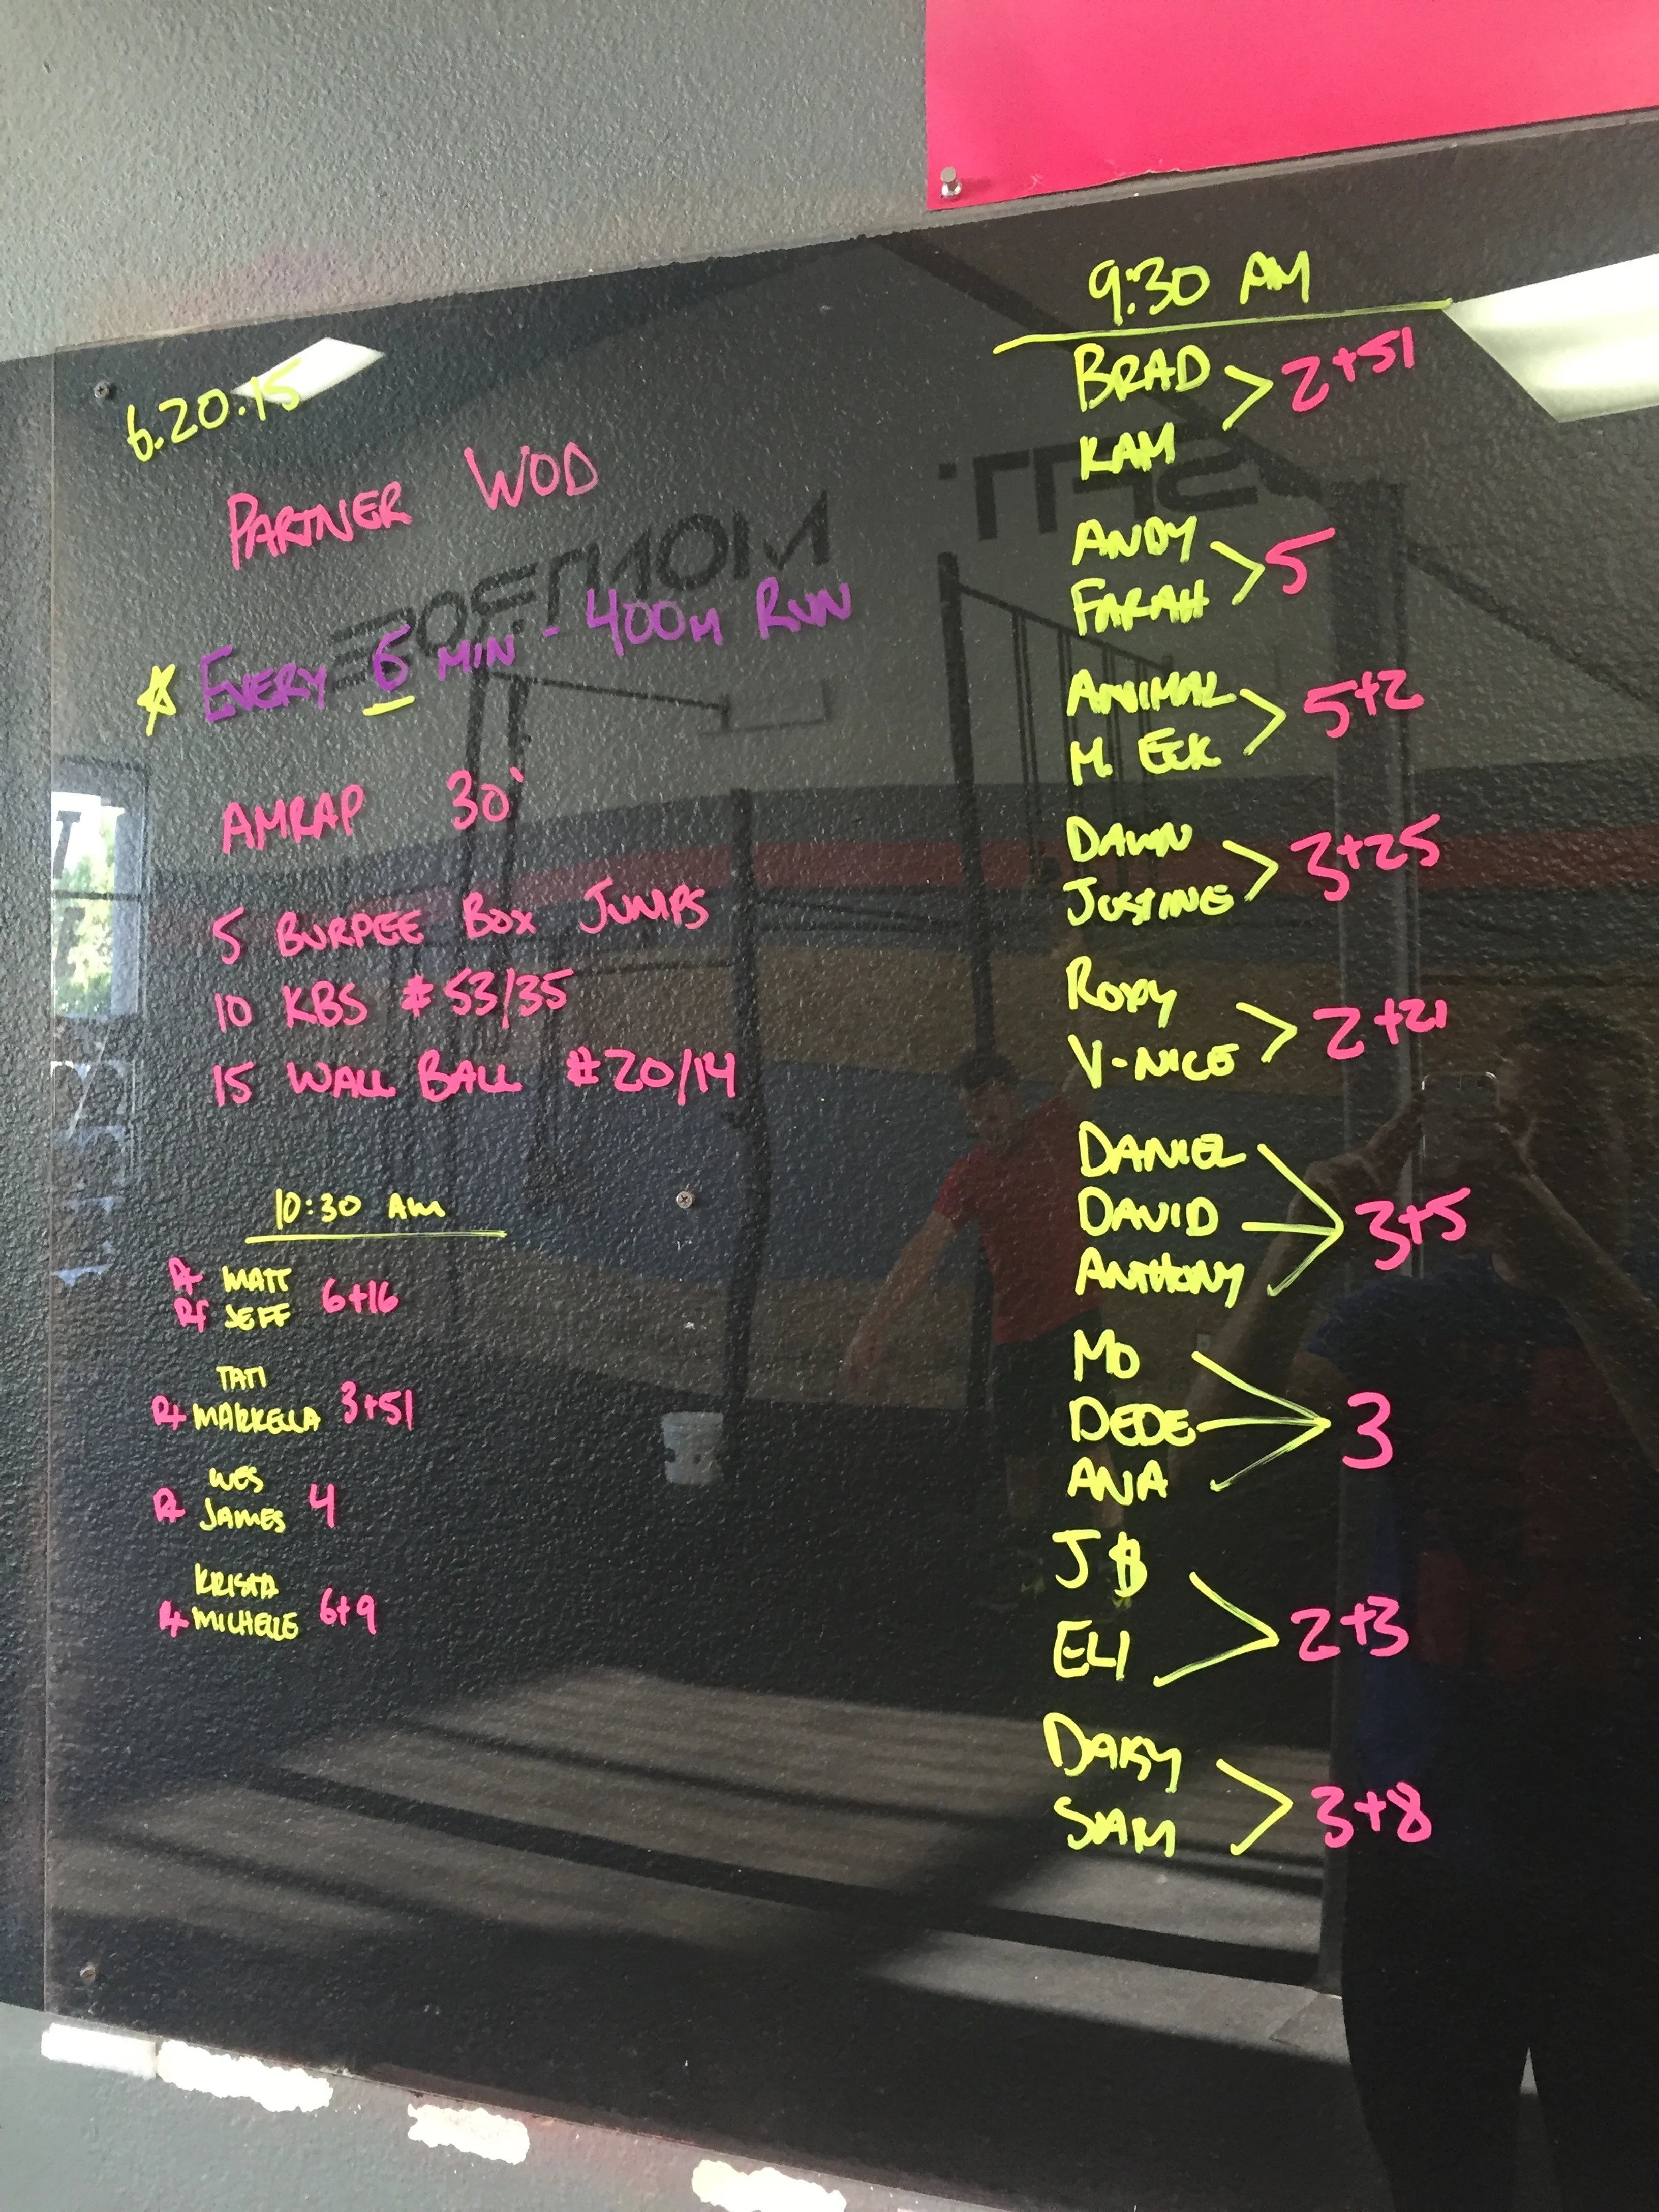 6.20.15
PARTNER WOD
EVERY 6 MIN - 400M RUN
AMRAP 30'
5 BURPEE BOX JUMPS
10 KBS #53/35
15 WALL BALL #20/14
10:30 AM
MATT
JEFF 6+16
TATI
MARKELLA 3+51
WES
JAMES 4
KRISTA
MICHELLE 6+9
9:30 AM
BRAD
KAM 2+51
ANDY
FARAH 5
ANIMAL
M. ECK 5+2
DAWN
JUSTINE 3+25
RORY
V-NICE 2+21
DANIEL
DAVID
ANTHONY 3+5
MO
DEDE
ANA 3
J $
ELI 2+3
SIAM 3+8